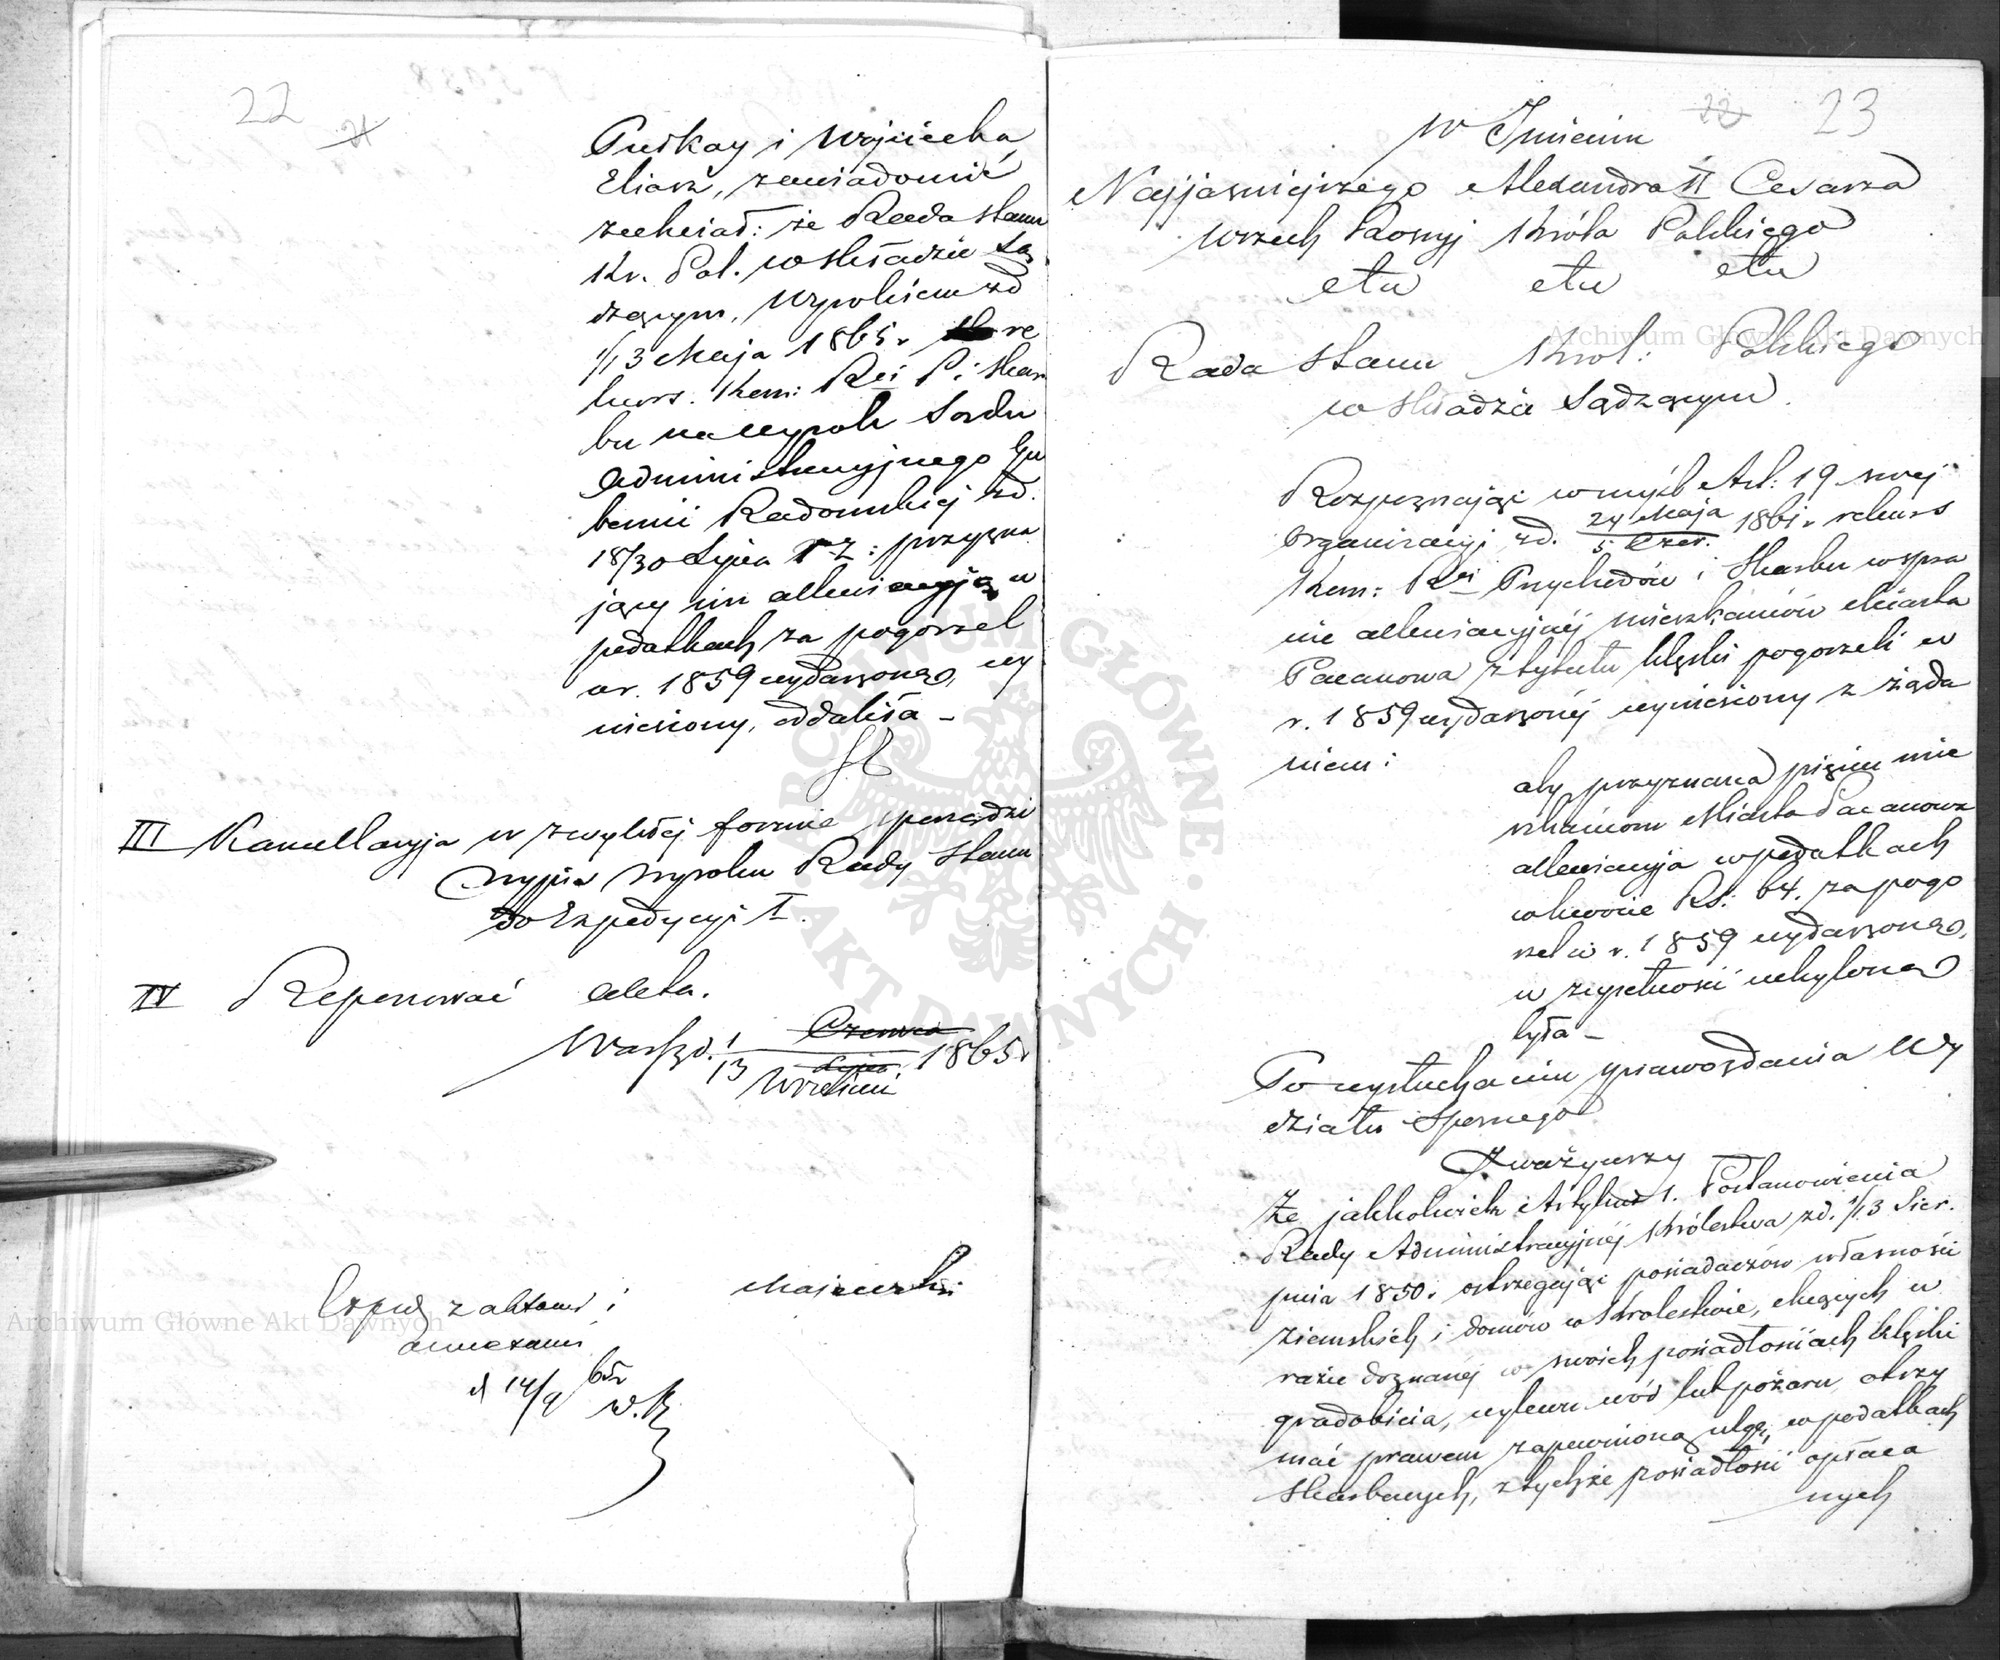 22
21
Puskay i Wojciecha
Eliasz, zawiadomić
zechciał: że Rada Stanu
Kr. Pol. w składzie Są
dzącym, wyrokiem z d
1/13 Maja 1865 r re
kurs. Kom: Rei P. i Skar
bu na wyrok Sądu
Administracyjnego Gu
bernii Radomskiej z d.
18/30 Lipca r z: przyzna
jący im allewiacyją w
podatkach za pogorzel
w r. 1859 wydarzoną, wy
niesiony, oddaliła –
III Kancellaryja w zwykłej formie sporządzi
wypis wyroku Rady Stanu
do Expedycyi I.
IV Reponować akta.
Warsz d. 1/13 Czerwca Lipca Wrześni 1865 r
Majewski
Exped z aktami i
annexami
d 14/9 65r
22
23
W Imieniu
Najjaśniejszego Alexandra II Cesarza
wszech Rossyj Króla Polskiego
etc etc etc
Rada Stanu Król: Polskiego
w składzie Sądzącym.
Rozpoznając w myśl Art: 19 swej
Organizacyi z d. 24 Maja / 5 Czer. 1861 r rekurs
Kom: Rei Przychodów i Skarbu w spra
wie allewiacyjnéj mieszkańców Miasta
Pacanowa z tytułu klęski pogorzeli w
r. 1859 wydarzonéj wyniesiony z żąda
niem:
aby przyznana pięciu mie
szkańcom Miasta Pacanowa
allewiacyja w podatkach
w kwocie Rs: 64. za pogo
rzel w r. 1859 wydarzoną,
w zupełności uchyloną
była –
Po wysłuchaniu sprawozdania Wy
działu Spornego
Zważywszy
Że jakkolwiek Artykuł 1. Postanowienia
Rady Administracyjnéj Królestwa z d. 1/13 Sier.
pnia 1850 r ostrzegając posiadaczów własności
ziemskich i domów w Królestwie, chcących w
razie doznanéj w swoich posiadłościach klęski
gradobicia, wylewu wód lub pożaru, otrzy
mać prawem zapewnioną ulgę w podatkach
skarbowych, z tychże posiadłości opłaca
nych
Archiwum Główne Akt Dawnych
Archiwum Główne Akt Dawnych
ARCHIWUM GŁÓWNE AKT DAWNYCH